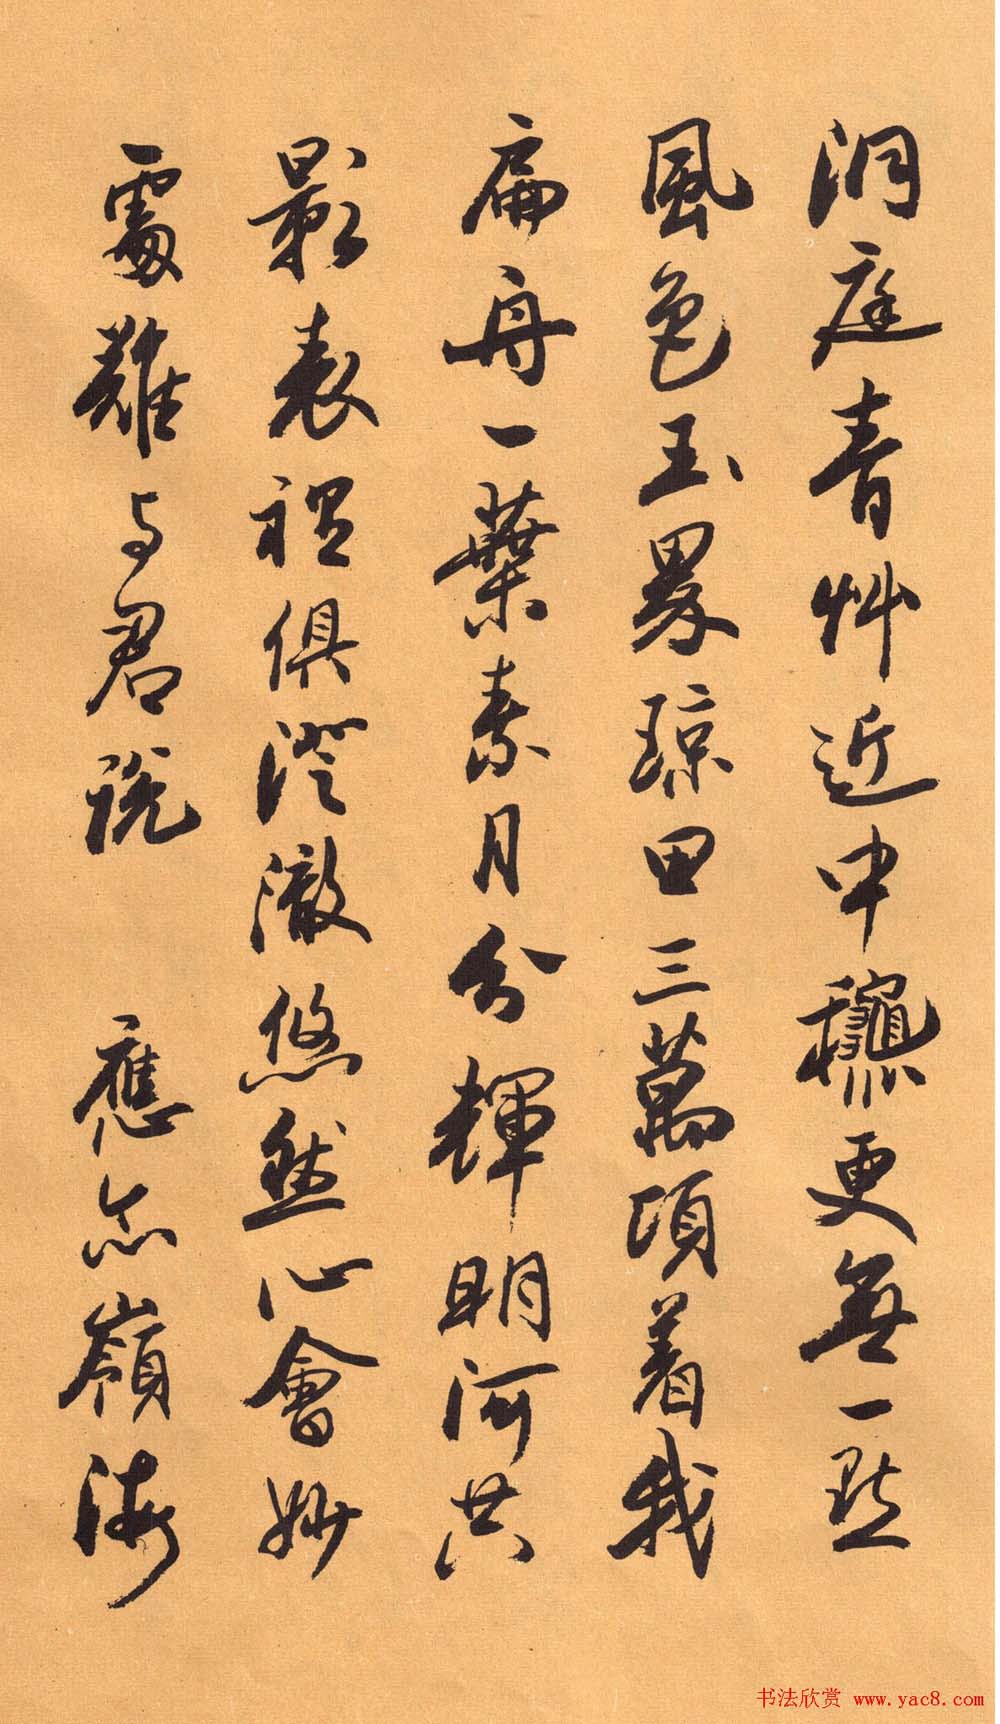 洞庭青艸近中龝更無一點
風色玉界瓊田三萬頃着我
扁舟一葉素月分輝明河共
影表裡俱澄澈悠然心會妙
處難与君說 應念嶺海
书法欣赏 www.yac8.com